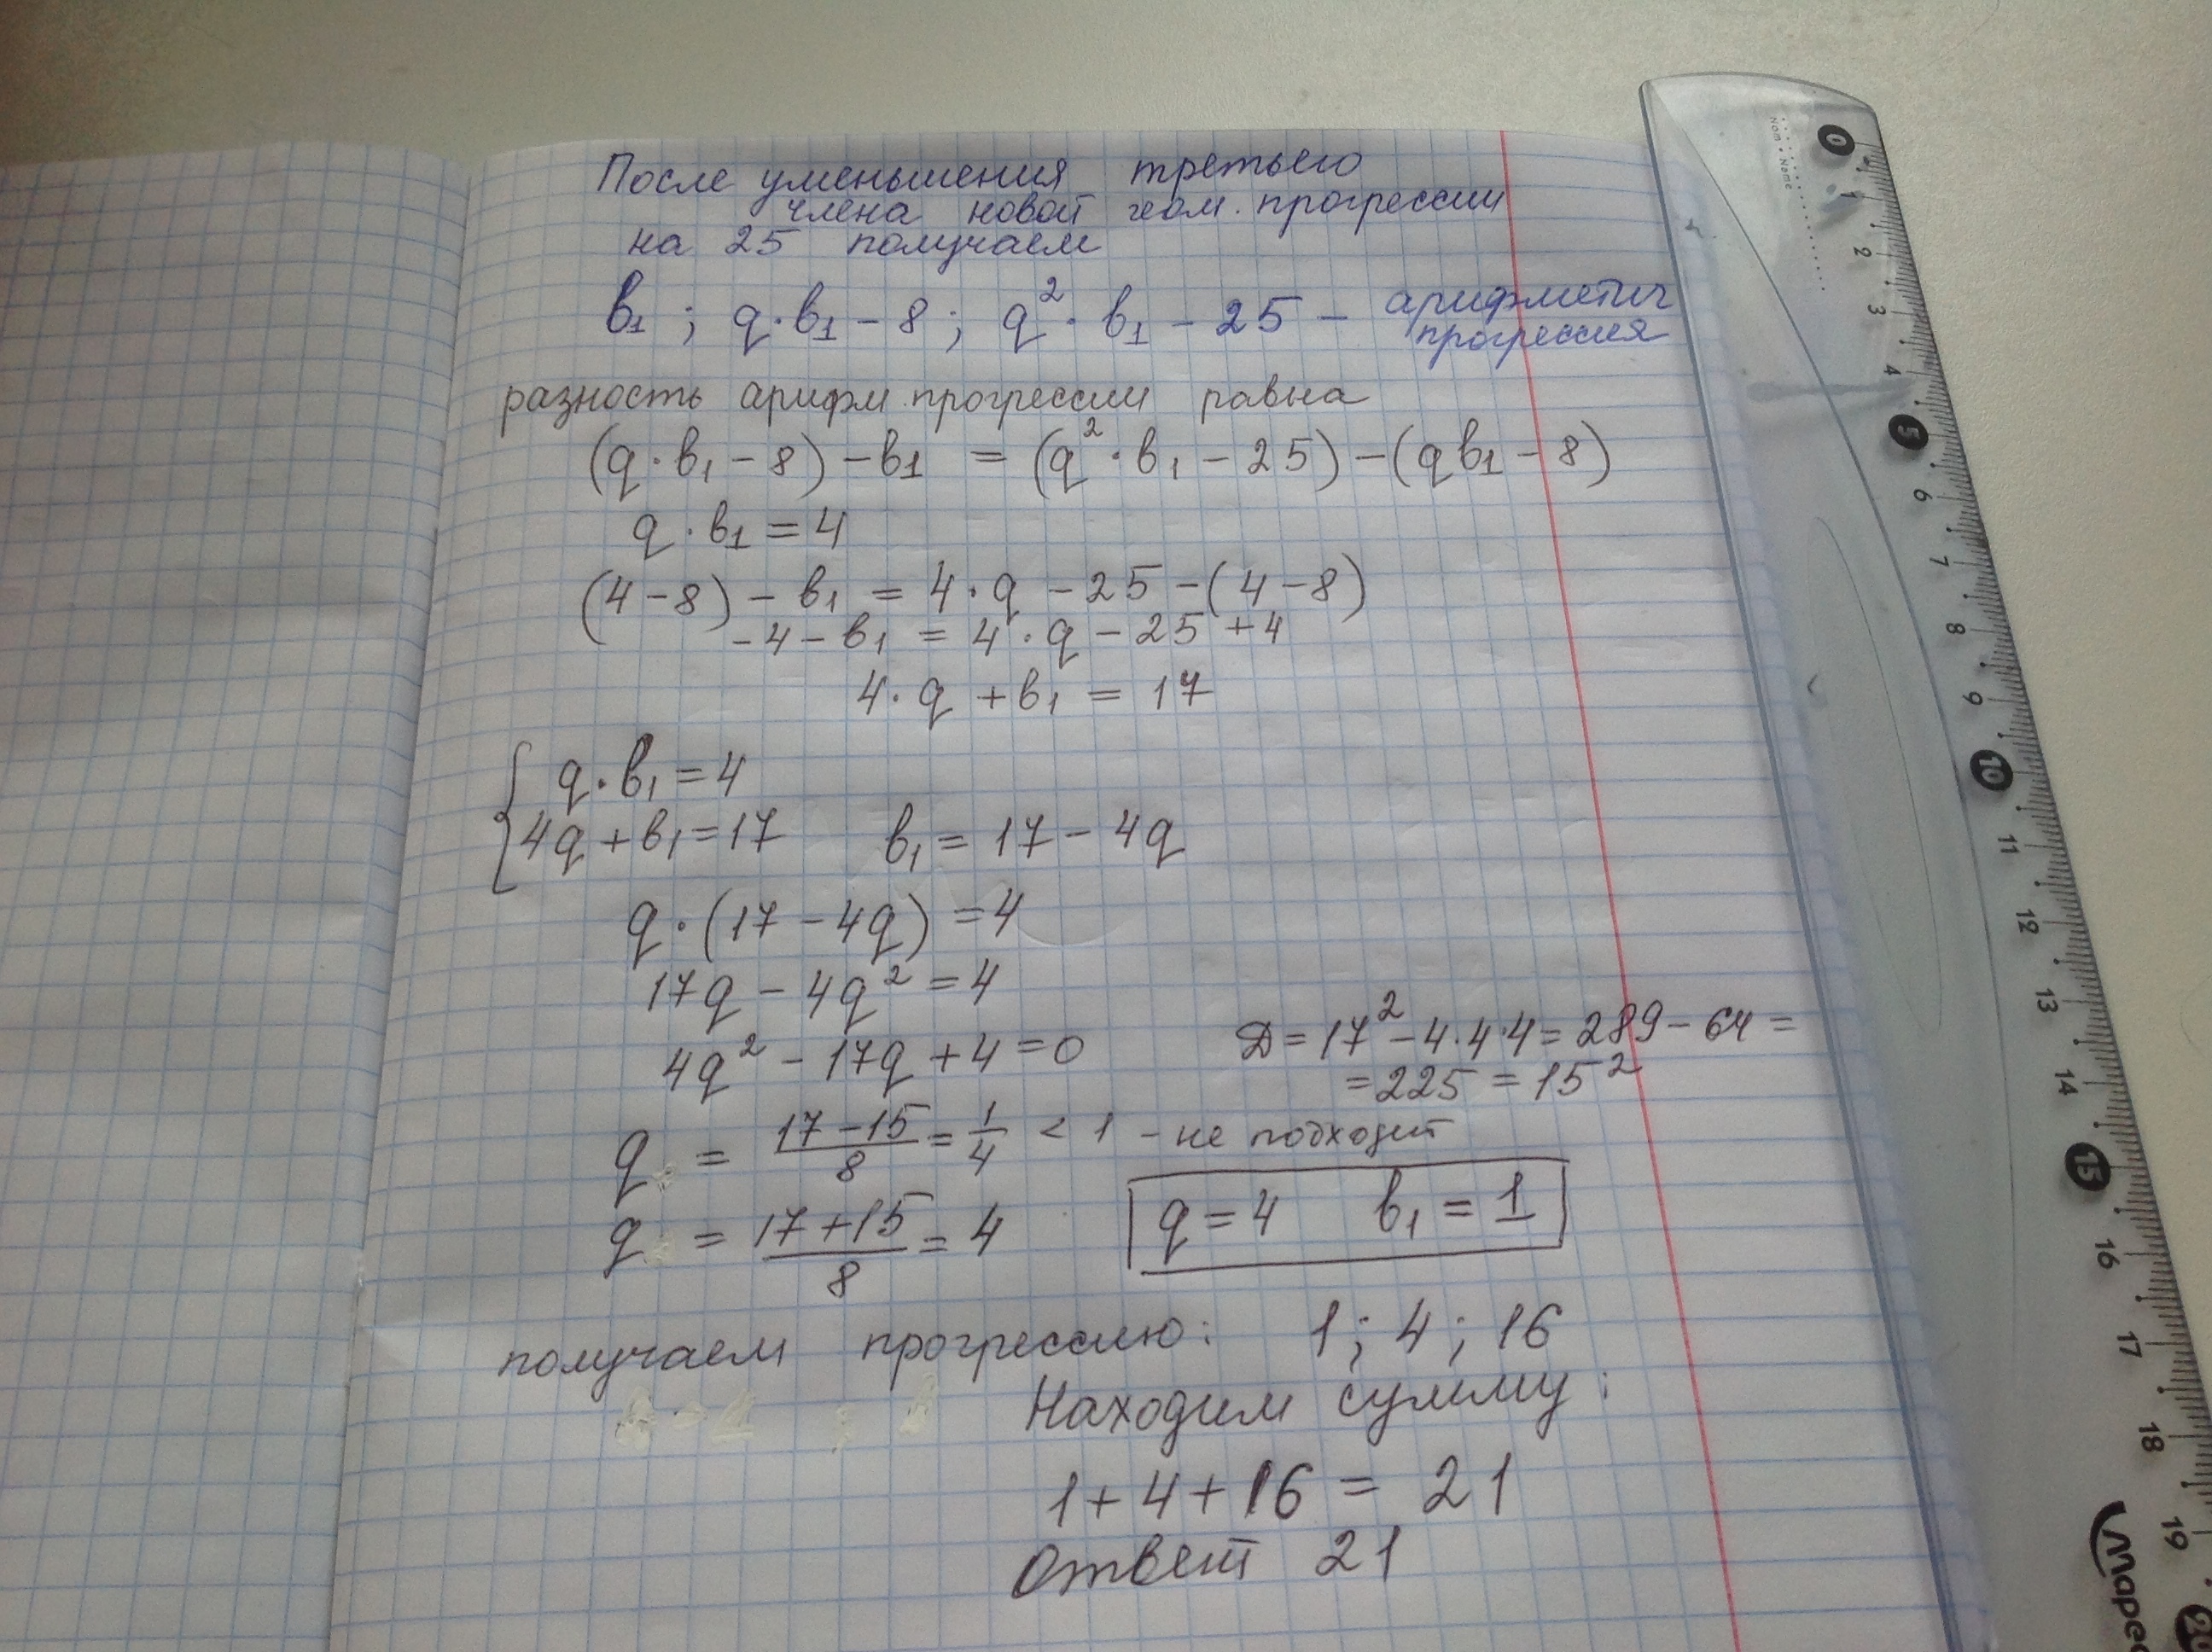 После уменьшения третьего
члена новой геом. прогрессии
на 25 получаем
b₁ ; q·b₁ - 8 ; q²·b₁ - 25 - арифметич
прогрессия
разность арифм. прогрессии равна
(q·b₁ - 8) - b₁ = (q²·b₁ - 25) - (qb₁ - 8)
q·b₁ = 4
(4 - 8) - b₁ = 4·q - 25 - (4 - 8)
-4 - b₁ = 4·q - 25 + 4
4·q + b₁ = 17
{ q·b₁ = 4
4q + b₁ = 17 b₁ = 17 - 4q
q·(17 - 4q) = 4
17q - 4q² = 4
4q² - 17q + 4 = 0 D = 17² - 4·4·4 = 289 - 64 =
= 225 = 15²
q = (17 - 15)/8 = 1/4 < 1 - не подходит
q = (17 + 15)/8 = 4 q = 4 b₁ = 1
получаем прогрессию: 1 ; 4 ; 16
Находим сумму:
1 + 4 + 16 = 21
Ответ 21
Nom • Name
0 1 2 3 4 5 6 7 8 9 10 11 12 13 14 15 16 17 18 19
Mape